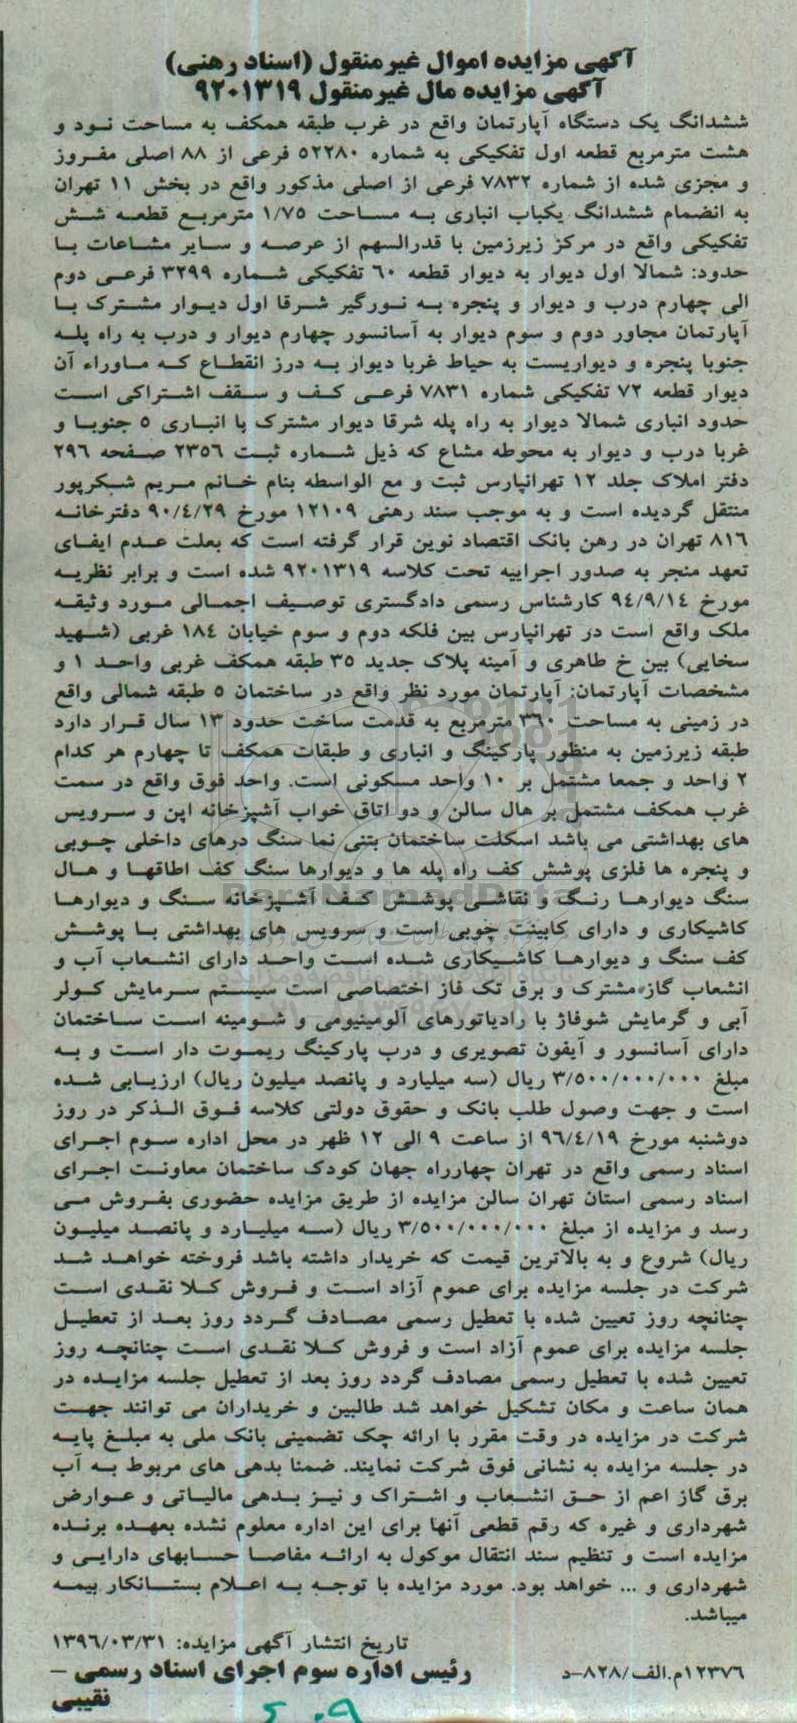 آگهی مزایده اموال غیرمنقول (اسناد رهنی)
آگهی مزایده مال غیرمنقول ۹۲۰۱۳۱۹
ششدانگ یک دستگاه آپارتمان واقع در غرب طبقه همکف به مساحت نود و
هشت مترمربع قطعه اول تفکیکی به شماره ۵۲۲۸۰ فرعی از ۸۸ اصلی مفروز
و مجزی شده از شماره ۷۸۳۲ فرعی از اصلی مذکور واقع در بخش ۱۱ تهران
به انضمام ششدانگ یکباب انباری به مساحت ۱/۷۵ مترمربع قطعه شش
تفکیکی واقع در مرکز زیرزمین با قدرالسهم از عرصه و سایر مشاعات با
حدود: شمالا اول دیوار به دیوار قطعه ۶۰ تفکیکی شماره ۳۲۹۹ فرعی دوم
الی چهارم درب و دیوار و پنجره به نورگیر شرقا اول دیوار مشترک با
آپارتمان مجاور دوم و سوم دیوار به آسانسور چهارم دیوار و درب به راه پله
جنوبا پنجره و دیواریست به حیاط غربا دیوار به درز انقطاع که ماوراء آن
دیوار قطعه ۷۲ تفکیکی شماره ۷۸۳۱ فرعی کف و سقف اشتراکی است
حدود انباری شمالا دیوار به راه پله شرقا دیوار مشترک با انباری ۵ جنوبا و
غربا درب و دیوار به محوطه مشاع که ذیل شماره ثبت ۲۳۵۶ صفحه ۲۹۶
دفتر املاک جلد ۱۲ تهرانپارس ثبت و مع الواسطه بنام خانم مریم شکرپور
منتقل گردیده است و به موجب سند رهنی ۱۲۱۰۹ مورخ ۹۰/۴/۲۹ دفترخانه
۸۱۶ تهران در رهن بانک اقتصاد نوین قرار گرفته است که بعلت عدم ایفای
تعهد منجر به صدور اجراییه تحت کلاسه ۹۲۰۱۳۱۹ شده است و برابر نظریه
مورخ ۹۴/۹/۱۴ کارشناس رسمی دادگستری توصیف اجمالی مورد وثیقه
ملک واقع است در تهرانپارس بین فلکه دوم و سوم خیابان ۱۸۴ غربی (شهید
سخایی) بین خ طاهری و آمینه پلاک جدید ۳۵ طبقه همکف غربی واحد ۱ و
مشخصات آپارتمان: آپارتمان مورد نظر واقع در ساختمان ۵ طبقه شمالی واقع
در زمینی به مساحت ۳۶۰ مترمربع به قدمت ساخت حدود ۱۳ سال قرار دارد
طبقه زیرزمین به منظور پارکینگ و انباری و طبقات همکف تا چهارم هر کدام
۲ واحد و جمعا مشتمل بر ۱۰ واحد مسکونی است. واحد فوق واقع در سمت
غرب همکف مشتمل بر هال سالن و دو اتاق خواب آشپزخانه اپن و سرویس
های بهداشتی می باشد اسکلت ساختمان بتنی نما سنگ درهای داخلی چوبی
و پنجره ها فلزی پوشش کف راه پله ها و دیوارها سنگ کف اطاقها و هال
سنگ دیوارها رنگ و نقاشی پوشش کف آشپزخانه سنگ و دیوارها
کاشیکاری و دارای کابینت چوبی است و سرویس های بهداشتی با پوشش
کف سنگ و دیوارها کاشیکاری شده است واحد دارای انشعاب آب و
انشعاب گاز مشترک و برق تک فاز اختصاصی است سیستم سرمایش کولر
آبی و گرمایش شوفاژ با رادیاتورهای آلومینیومی و شومینه است ساختمان
دارای آسانسور و آیفون تصویری و درب پارکینگ ریموت دار است و به
مبلغ ۳/۵۰۰/۰۰۰/۰۰۰ ریال (سه میلیارد و پانصد میلیون ریال) ارزیابی شده
است و جهت وصول طلب بانک و حقوق دولتی کلاسه فوق الذکر در روز
دوشنبه مورخ ۹۶/۴/۱۹ از ساعت ۹ الی ۱۲ ظهر در محل اداره سوم اجرای
اسناد رسمی واقع در تهران چهارراه جهان کودک ساختمان معاونت اجرای
اسناد رسمی استان تهران سالن مزایده از طریق مزایده حضوری بفروش می
رسد و مزایده از مبلغ ۳/۵۰۰/۰۰۰/۰۰۰ ریال (سه میلیارد و پانصد میلیون
ریال) شروع و به بالاترین قیمت که خریدار داشته باشد فروخته خواهد شد
شرکت در جلسه مزایده برای عموم آزاد است و فروش کلا نقدی است
چنانچه روز تعیین شده با تعطیل رسمی مصادف گردد روز بعد از تعطیل
جلسه مزایده برای عموم آزاد است و فروش کلا نقدی است چنانچه روز
تعیین شده با تعطیل رسمی مصادف گردد روز بعد از تعطیل جلسه مزایده در
همان ساعت و مکان تشکیل خواهد شد طالبین و خریداران می توانند جهت
شرکت در مزایده در وقت مقرر با ارائه چک تضمینی بانک ملی به مبلغ پایه
در جلسه مزایده به نشانی فوق شرکت نمایند. ضمنا بدهی های مربوط به آب
برق گاز اعم از حق انشعاب و اشتراک و نیز بدهی مالیاتی و عوارض
شهرداری و غیره که رقم قطعی آنها برای این اداره معلوم نشده بعهده برنده
مزایده است و تنظیم سند انتقال موکول به ارائه مفاصا حسابهای دارایی و
شهرداری و ... خواهد بود. مورد مزایده با توجه به اعلام بستانکار بیمه
میباشد.
تاریخ انتشار آگهی مزایده: ۱۳۹۶/۰۳/۳۱
۱۲۳۷۶م.الف/۸۲۸-د رئیس اداره سوم اجرای اسناد رسمی –
نقیبی